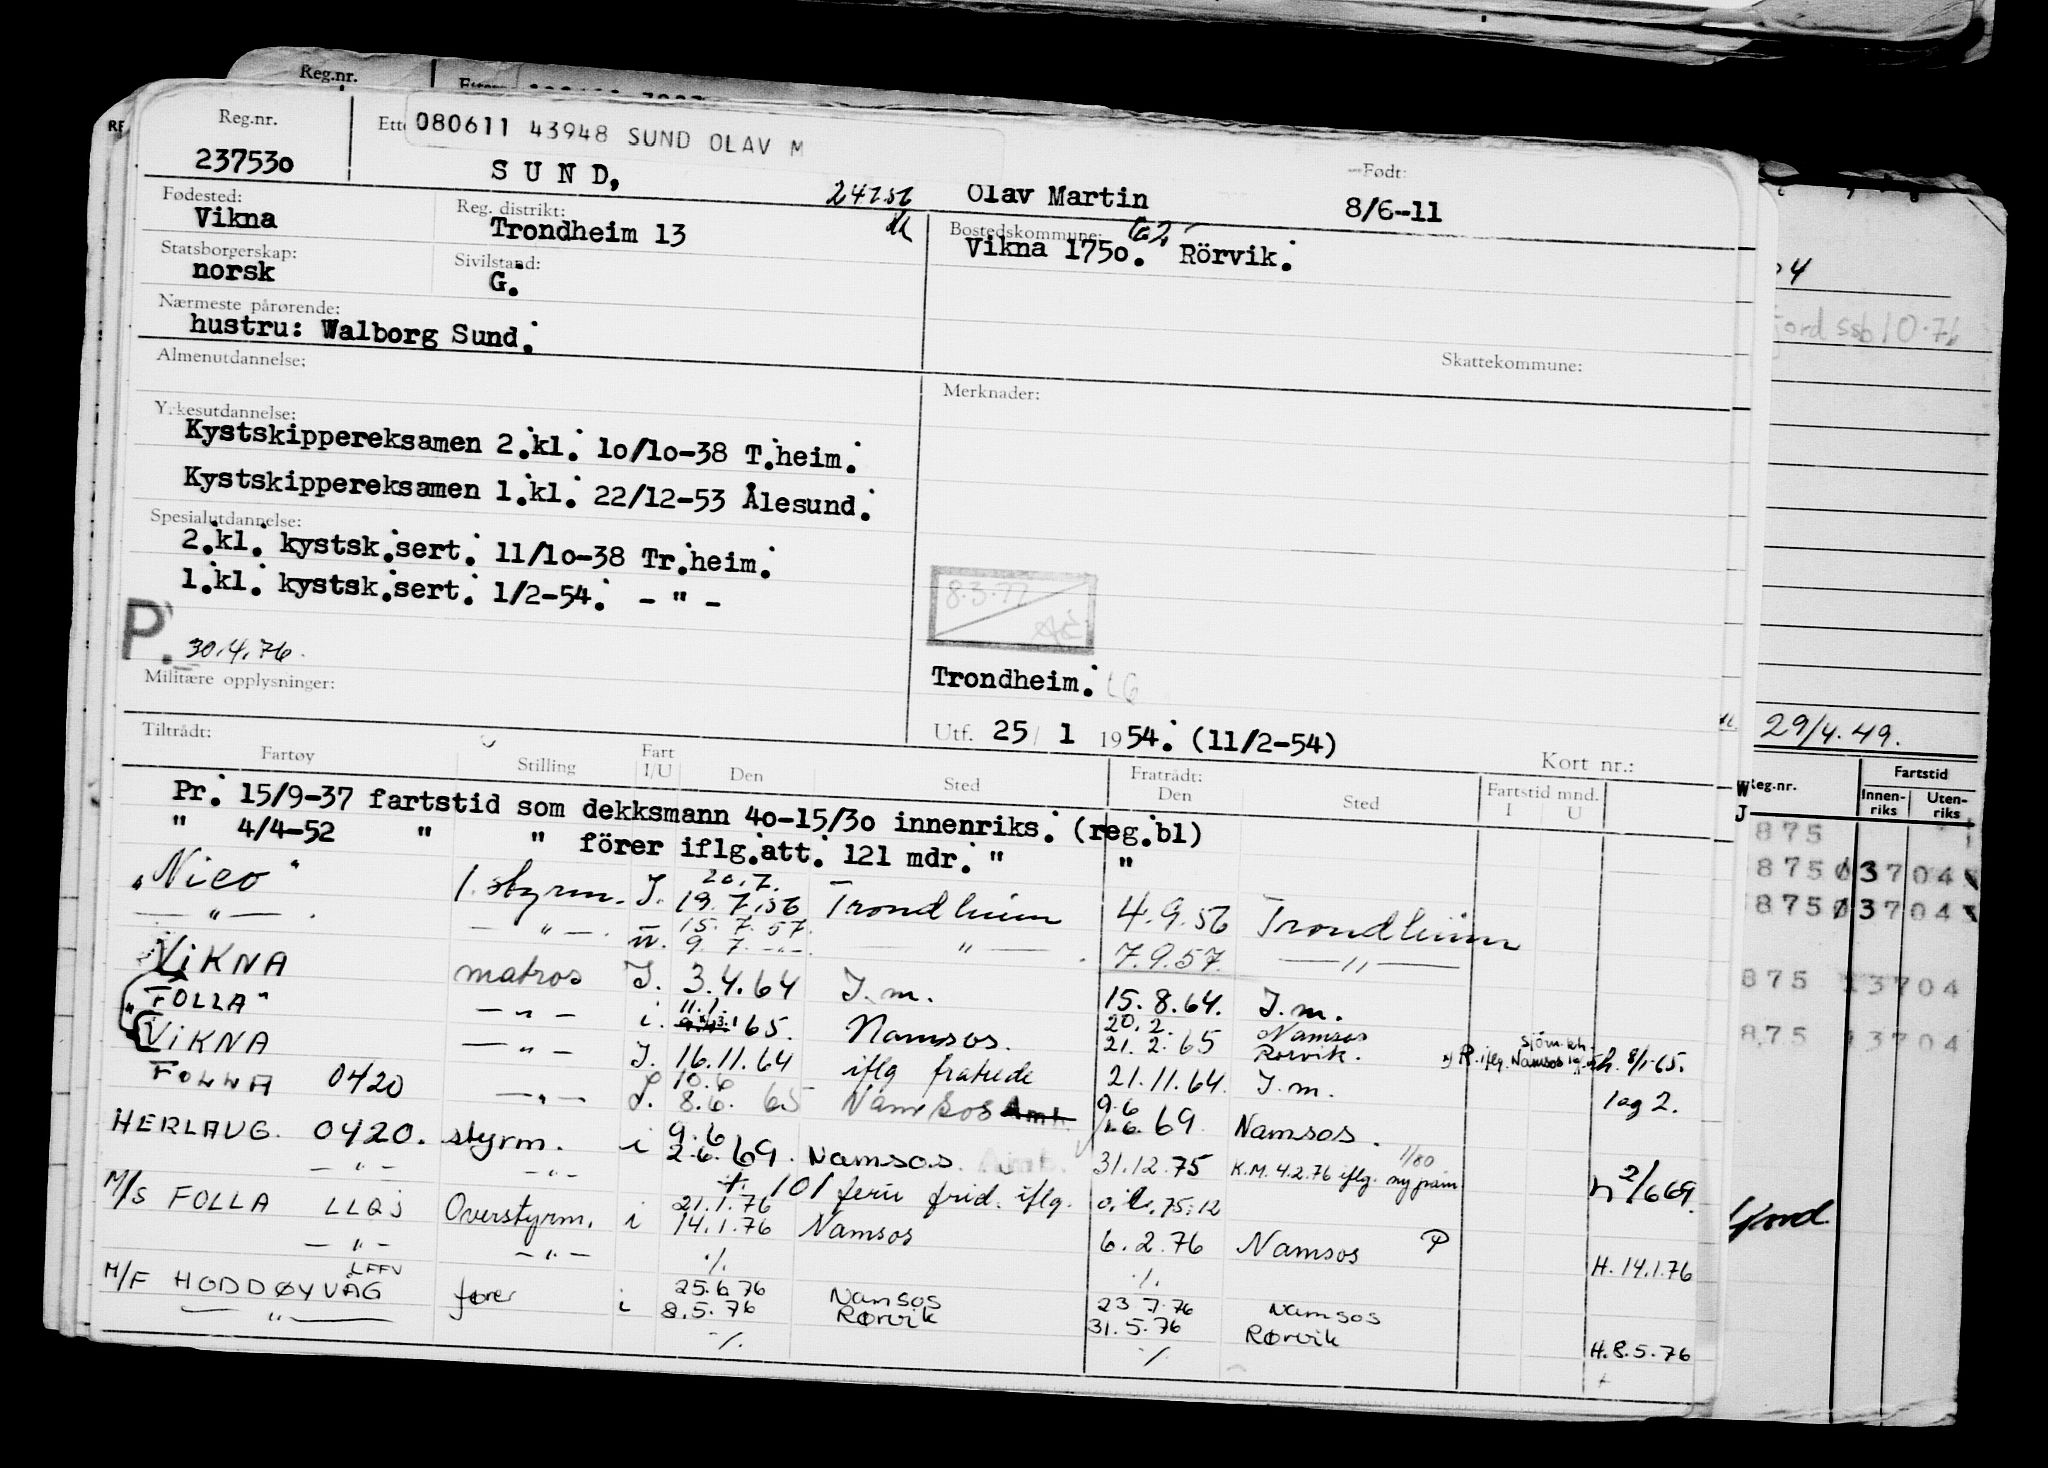 Reg.nr.
Reg.nr. 080611 43948 SUND OLAV M Født:
237530 SUND, 24756 Olav Martin 8/6-11
Fødested: Reg. distrikt: Bostedskommune:
Vikna Trondheim 13 Vikna 1750. Rörvik.
Statsborgerskap: Sivilstand:
norsk G.
Nærmeste pårørende:
hustru: Walborg Sund.
Almenutdannelse: Skattekommune:
Merknader:
Yrkesutdannelse:
Kystskippereksamen 2.kl. 10/10-38 T.heim.
Kystskippereksamen 1.kl. 22/12-53 Ålesund.
Spesialutdannelse:
2.kl. kystsk.sert. 11/10-38 Tr.heim.
1.kl. kystsk.sert. 1/2-54. - " -
8.3.77
P. 30.4.76.
Militære opplysninger: Trondheim.
Utf. 25/ 1 1954. (11/2-54)
Tiltrådt: Kort nr.:
Fartøy Stilling Fart I/U Den Sted Fratrådt: Den Sted Fartstid mnd. I U
Pr. 15/9-37 fartstid som dekksmann 40-15/30 innenriks. (reg.bl)
" 4/4-52 " " förer iflg.att. 121 mdr. " "
20.7.
"Nico" 1. styrm. I. 19.7.56 Trondheim 4.9.56 Trondheim
15.7.57
— " — . — " — . 9.7. -"- — " — . 7.9.57. — " —
VIKNA matros I. 3.4.64 I.m. 15.8.64. I.m.
11.1. 20.2. Namsos
"FOLLA" — " — i. 65. Namsos. 21.2.65 Rørvik. R. iflg. Namsos 8/1-65.
VIKNA — " — I. 16.11.64 iflg fratrede 21.11.64. I.m. lag 2.
10.6 9.6
FOLLA 0420 — " — I. 8.6. 65 Namsos 69. Namsos.
9.6
HERLAUG. 0420. styrm. i 2.6.69. Namsos. 31.12.75 K.M. 4.2.76 iflg. 2/6 69.
— " — — " — 101 ferie frid. iflg.
21.1.76
M/S FOLLA LLQJ Overstyrm. i 14.1.76 Namsos 6.2.76 Namsos P H. 14.1.76
— " — — " — ./. ./.
LFFV 25.6.76 Namsos 23.7.76 Namsos
M/F HODDØYVÅG fører i 8.5.76 Rørvik 31.5.76 Rørvik H. 8.5.76
— " — ./. ./.
10.76
29/4.49.
Reg.nr. Fartstid
Innen-riks Uten-riks
875
875 13704
875 13704